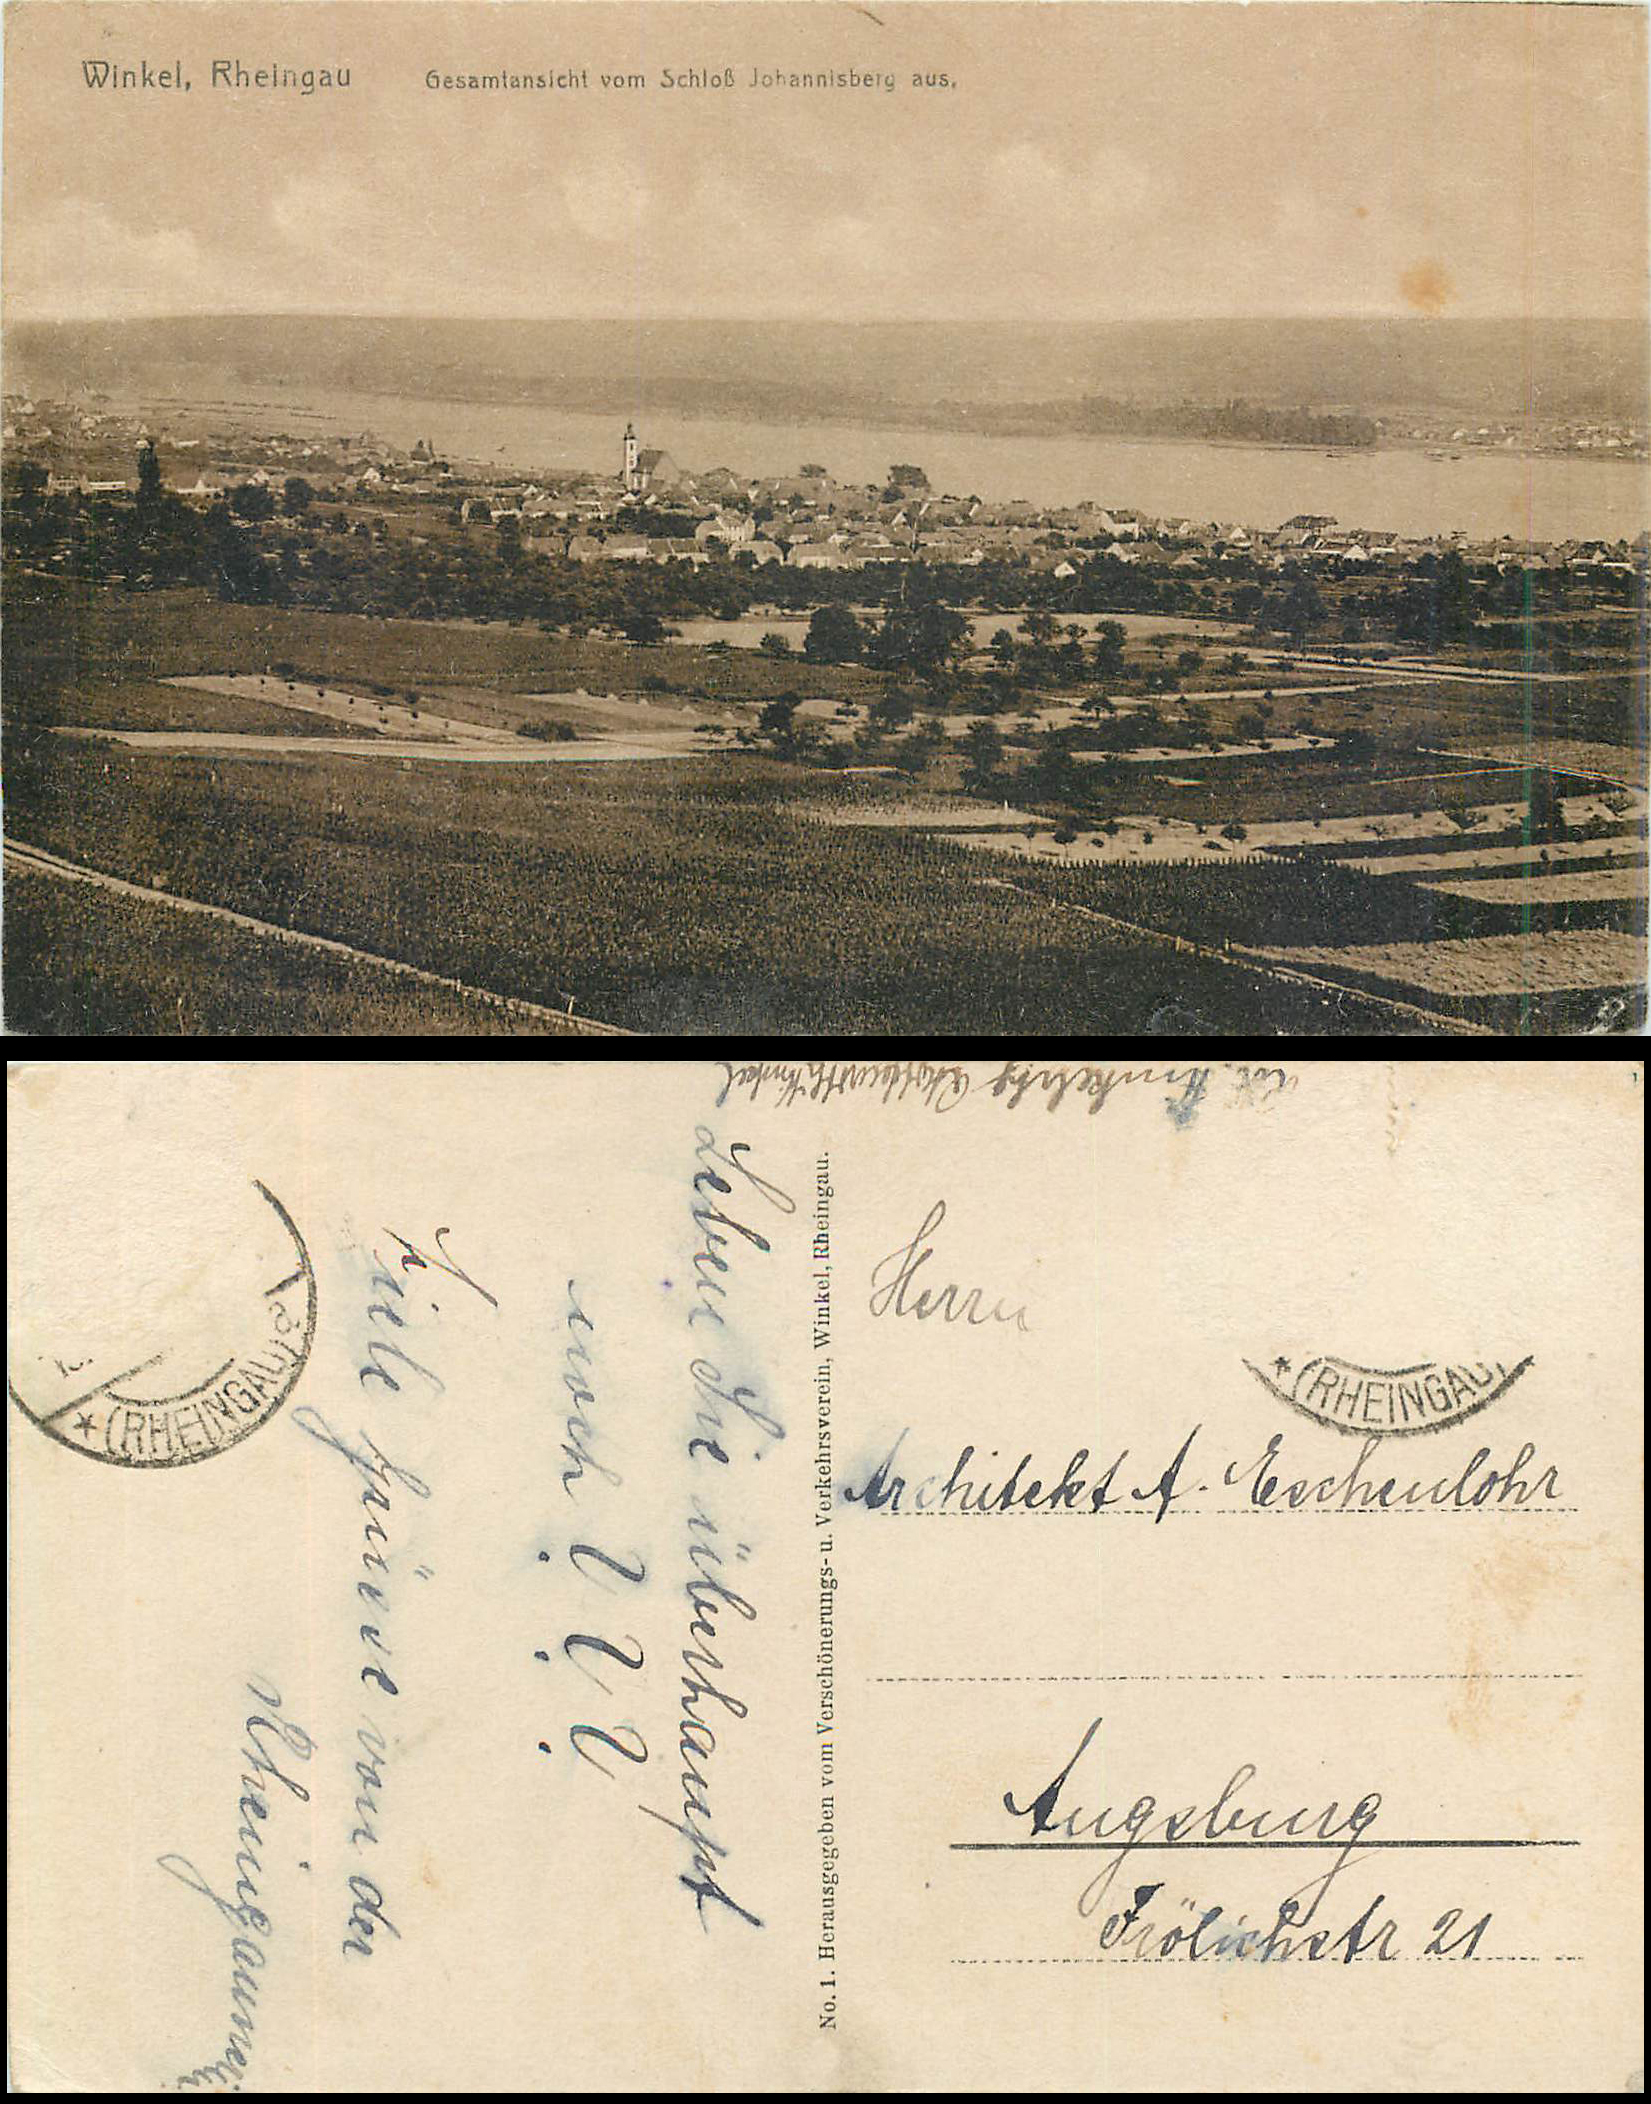 Winkel, Rheingau Gesamtansicht vom Schloß Johannisberg aus.
Leben Sie überhaupt
noch ? ? ?
Viele Grüsse von der
Rheingauner
(RHEINGAU)
No. 1. Herausgegeben vom Verschönerungs- u. Verkehrsverein, Winkel, Rheingau.
Herrn
(RHEINGAU)
Architekt A. Eschenlohr
Augsburg
Frölichstr 21